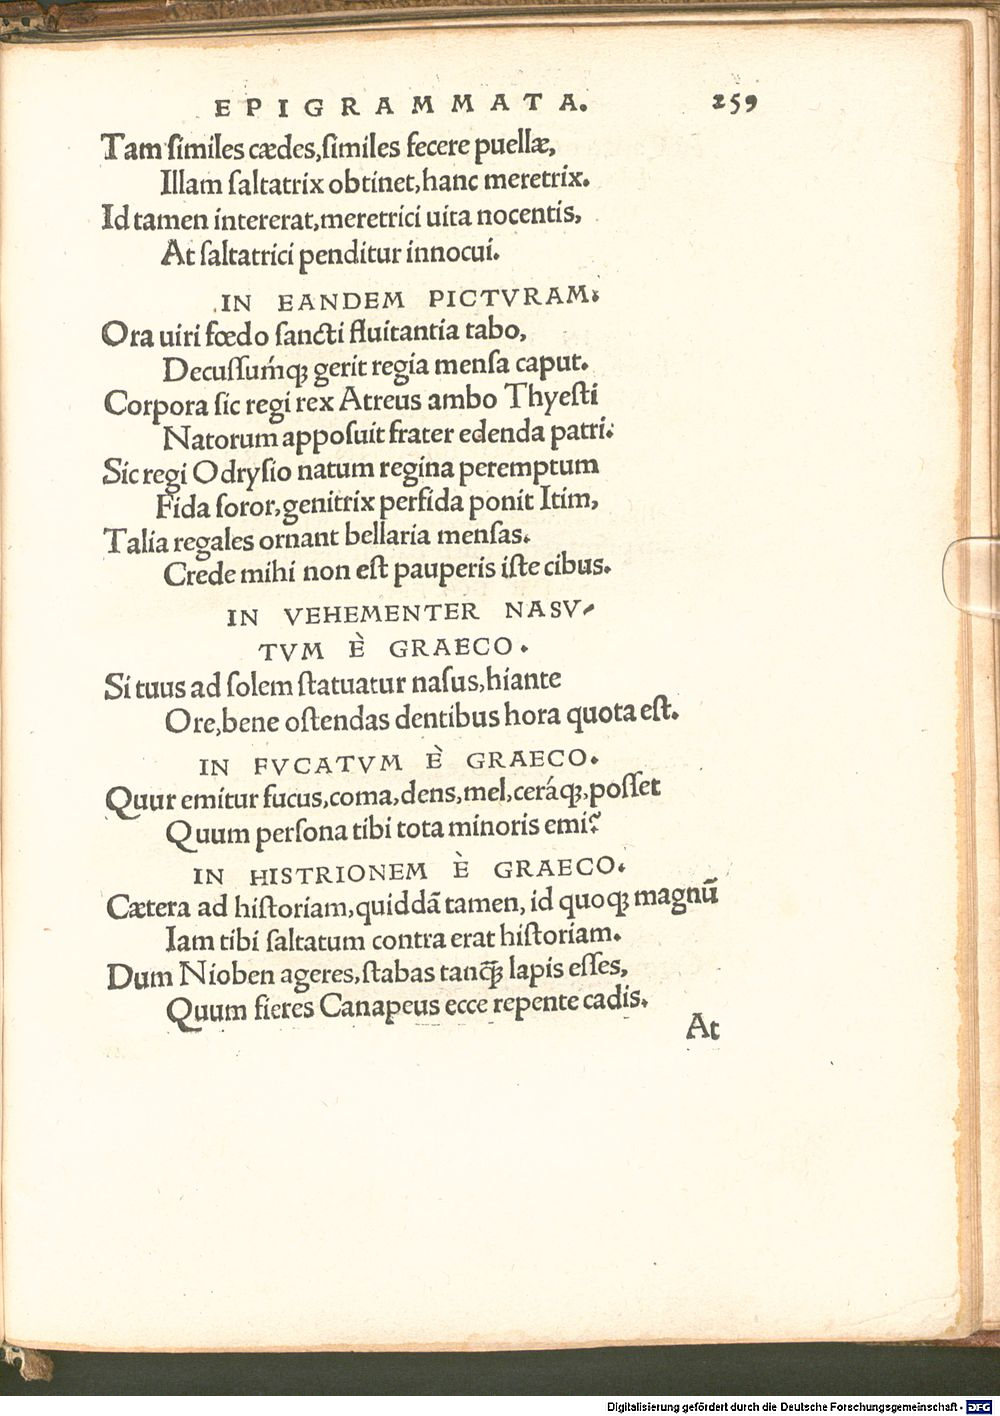 EPIGRAMMATA. 259
Tam ſimiles cædes,ſimiles fecere puellæ,
Illam ſaltatrix obtinet,hanc meretrix.
Id tamen intererat,meretrici uita nocentis,
At ſaltatrici penditur innocui.
IN EANDEM PICTVRAM.
Ora uiri fœdo ſancti fluitantia tabo,
Decuſſumq́ꝫ gerit regia menſa caput.
Corpora ſic regi rex Atreus ambo Thyeſti
Natorum appoſuit frater edenda patri.
Sic regi Odryſio natum regina peremptum
Fida ſoror,genitrix perfida ponit Itim,
Talia regales ornant bellaria menſas.
Crede mihi non eſt pauperis iſte cibus.
IN VEHEMENTER NASV-
TVM È GRAECO.
Si tuus ad ſolem ſtatuatur naſus,hiante
Ore,bene oſtendas dentibus hora quota eſt.
IN FVCATVM È GRAECO.
Quur emitur fucus,coma,dens,mel,ceráqꝫ,poſſet
Quum perſona tibi tota minoris emi?
IN HISTRIONEM È GRAECO.
Cætera ad hiſtoriam,quiddã tamen, id quoqꝫ magnũ
Iam tibi ſaltatum contra erat hiſtoriam.
Dum Nioben ageres,ſtabas tanq̃ꝫ lapis eſſes,
Quum fieres Canapeus ecce repente cadis.
At
Digitalisierung gefördert durch die Deutsche Forschungsgemeinschaft - DFG